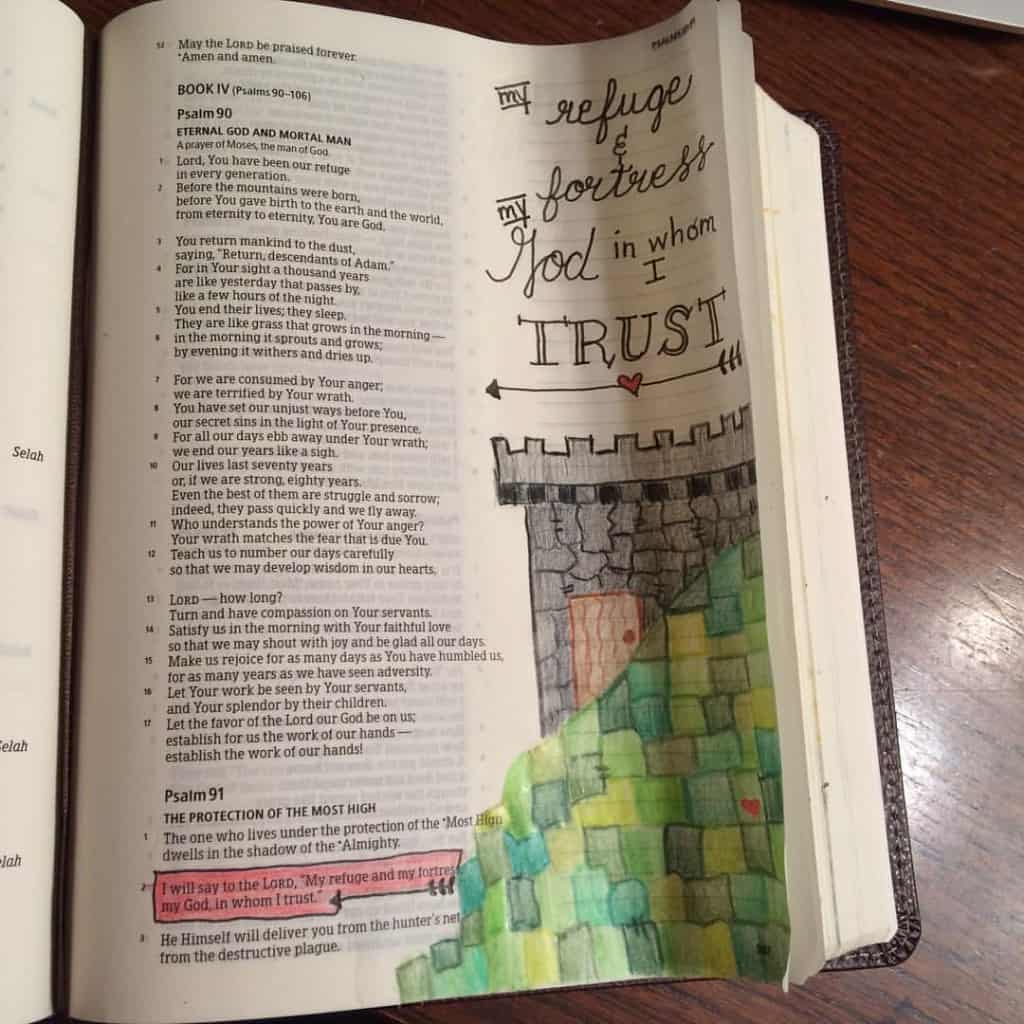 Selah
Selah
elah
52 May the LORD be praised forever.
*Amen and amen.
BOOK IV (Psalms 90–106)
Psalm 90
ETERNAL GOD AND MORTAL MAN
A prayer of Moses, the man of God.
1 Lord, You have been our refuge
in every generation.
2 Before the mountains were born,
before You gave birth to the earth and the world,
from eternity to eternity, You are God.
3 You return mankind to the dust,
saying, "Return, descendants of Adam."
4 For in Your sight a thousand years
are like yesterday that passes by,
like a few hours of the night.
5 You end their lives; they sleep.
They are like grass that grows in the morning —
6 in the morning it sprouts and grows;
by evening it withers and dries up.
7 For we are consumed by Your anger;
we are terrified by Your wrath.
8 You have set our unjust ways before You,
our secret sins in the light of Your presence.
9 For all our days ebb away under Your wrath;
we end our years like a sigh.
10 Our lives last seventy years
or, if we are strong, eighty years.
Even the best of them are struggle and sorrow;
indeed, they pass quickly and we fly away.
11 Who understands the power of Your anger?
Your wrath matches the fear that is due You.
12 Teach us to number our days carefully
so that we may develop wisdom in our hearts.
13 LORD — how long?
Turn and have compassion on Your servants.
14 Satisfy us in the morning with Your faithful love
so that we may shout with joy and be glad all our days.
15 Make us rejoice for as many days as You have humbled us,
for as many years as we have seen adversity.
16 Let Your work be seen by Your servants,
and Your splendor by their children.
17 Let the favor of the Lord our God be on us;
establish for us the work of our hands —
establish the work of our hands!
Psalm 91
THE PROTECTION OF THE MOST HIGH
1 The one who lives under the protection of the *Most High
dwells in the shadow of the *Almighty.
2 I will say to the LORD, "My refuge and my fortress
my God, in whom I trust."
3 He Himself will deliver you from the hunter's net
from the destructive plague.
my refuge
&
my fortress
God in whom
I
TRUST